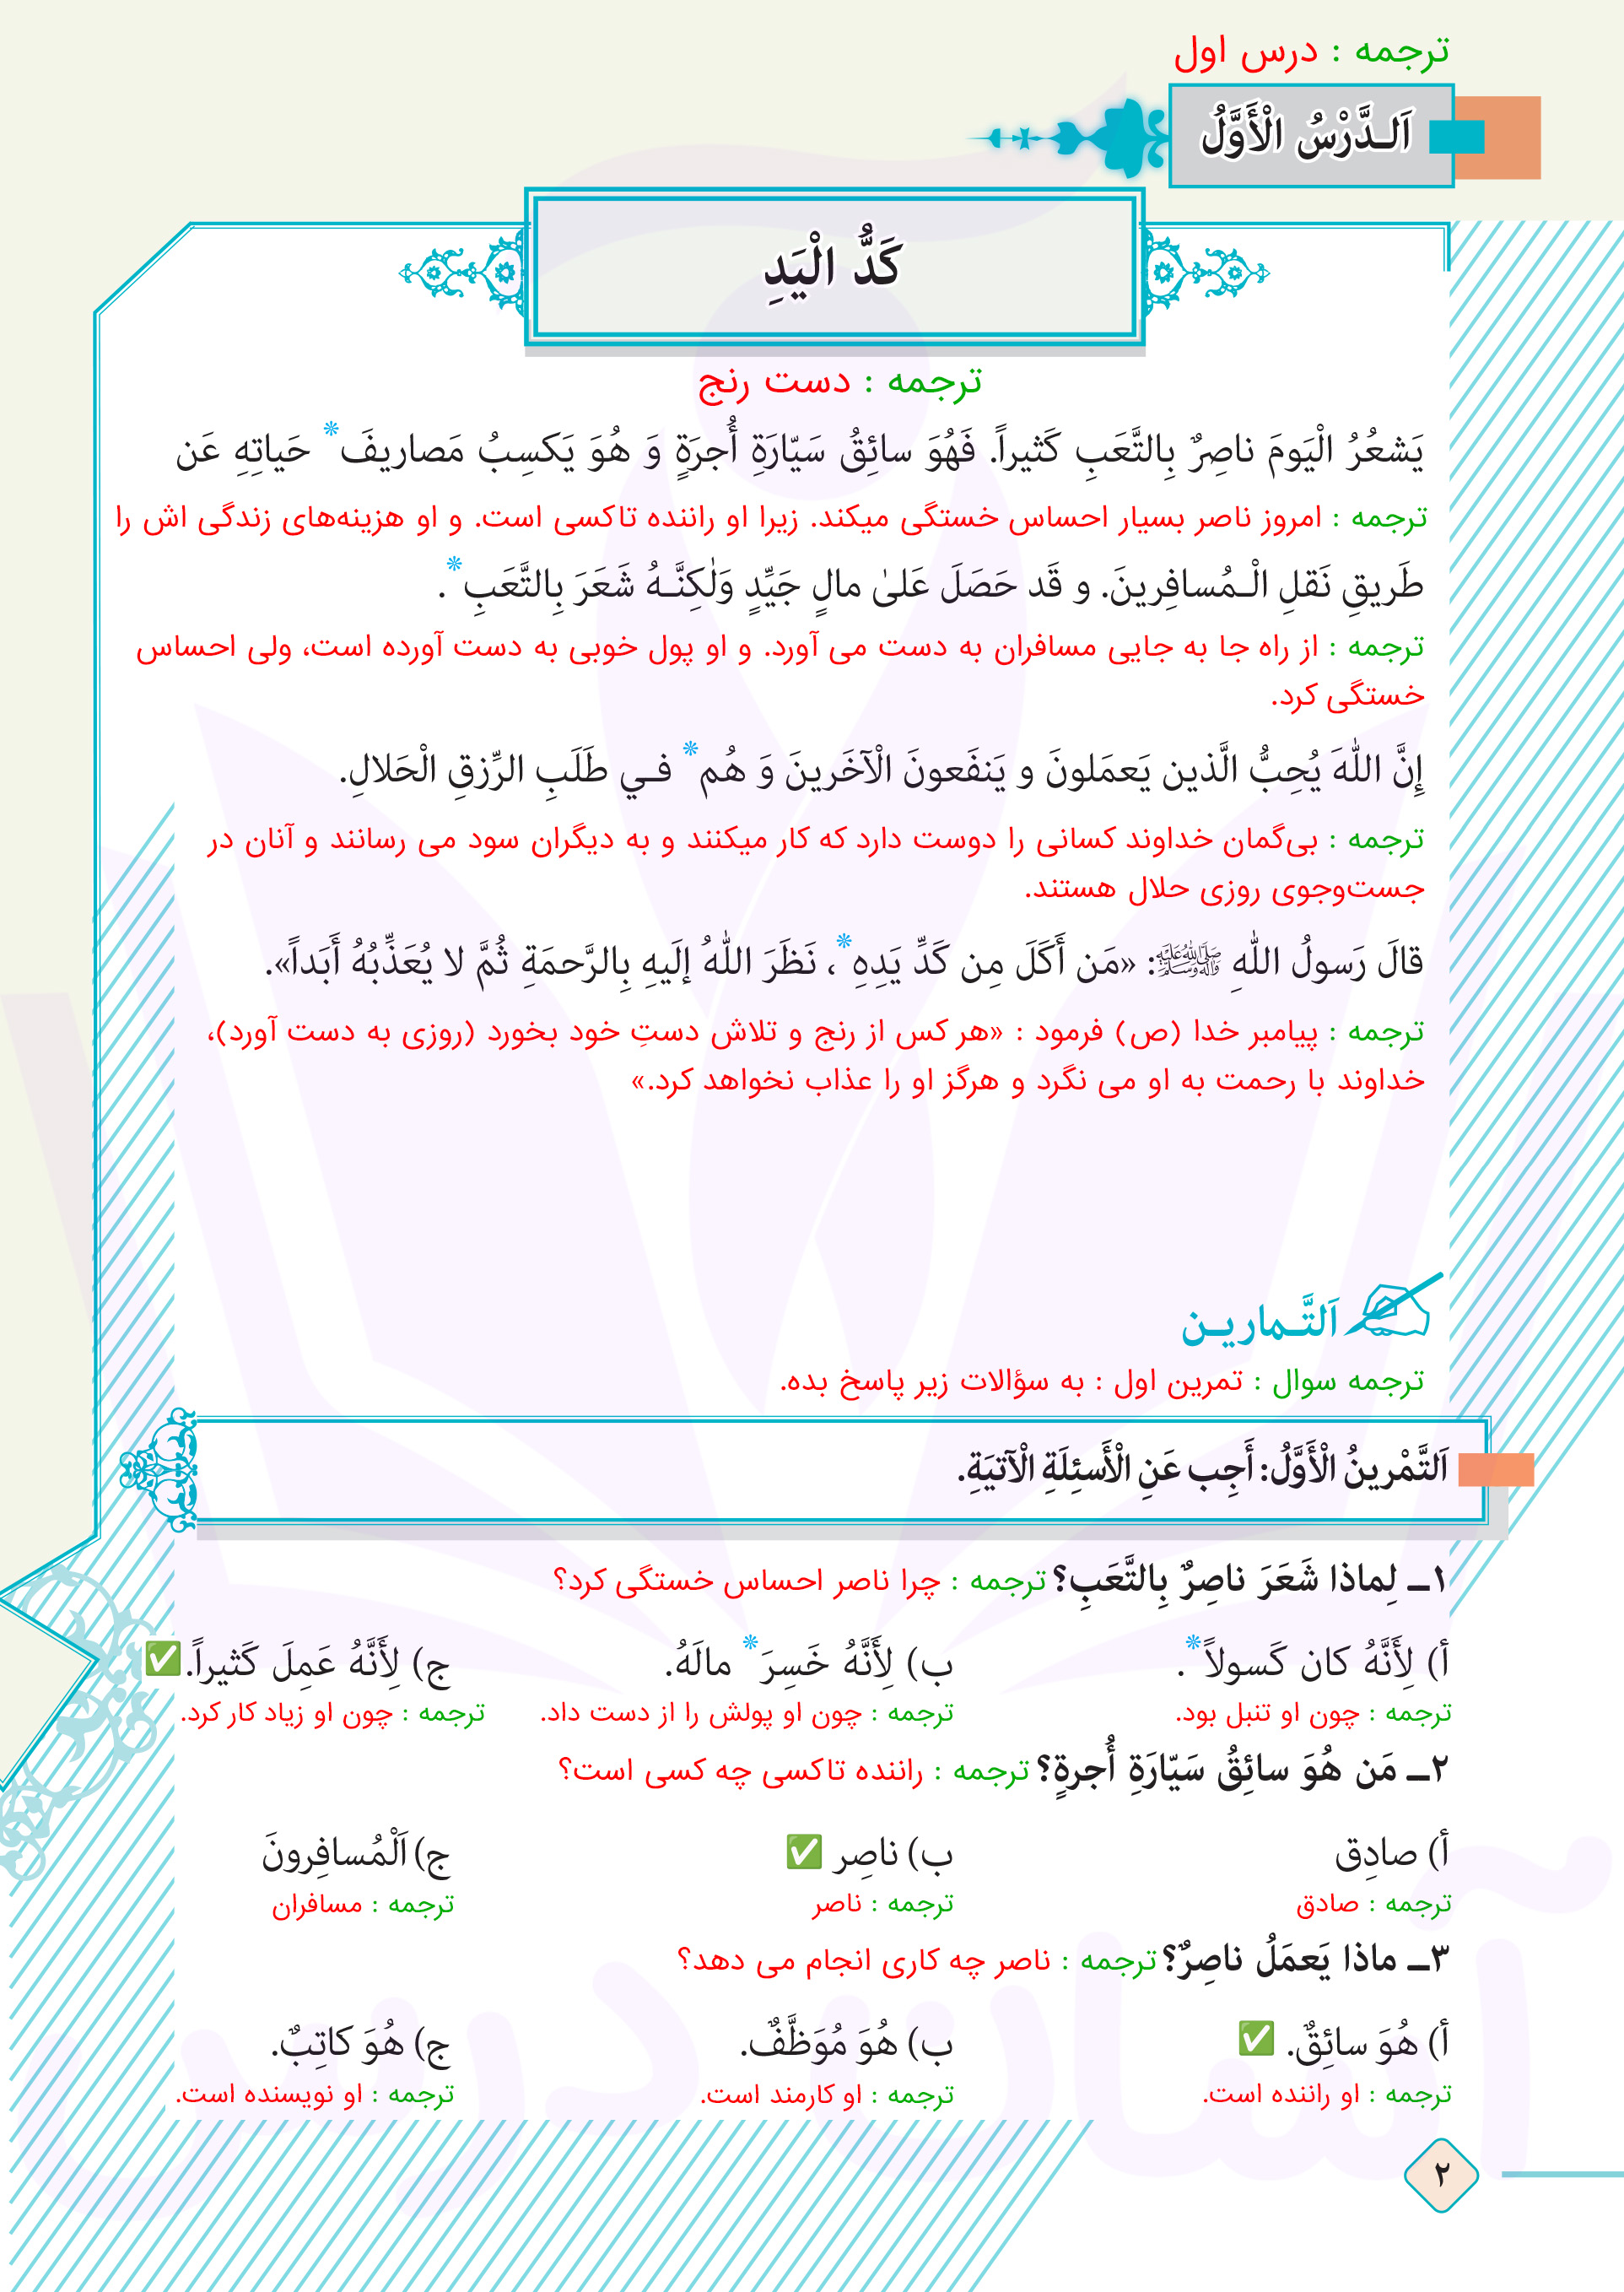 ترجمه : درس اول
اَلـدَّرْسُ الْأَوَّلُ
كَدُّ الْيَدِ
ترجمه : دست رنج
يَشعُرُ الْيَومَ ناصِرٌ بِالتَّعَبِ كَثيراً. فَهُوَ سائِقُ سَيّارَةِ أُجرَةٍ وَ هُوَ يَكسِبُ مَصاريفَ* حَياتِهِ عَن
ترجمه : امروز ناصر بسیار احساس خستگی میکند. زیرا او راننده تاکسی است. و او هزینه‌های زندگی اش را
طَريقِ نَقلِ الْـمُسافِرينَ. و قَد حَصَلَ عَلىٰ مالٍ جَيِّدٍ وَلٰكِنَّـهُ شَعَرَ بِالتَّعَبِ*.
ترجمه : از راه جا به جایی مسافران به دست می آورد. و او پول خوبی به دست آورده است، ولی احساس
خستگی کرد.
إِنَّ اللّٰهَ يُحِبُّ الَّذين يَعمَلونَ و يَنفَعونَ الْآخَرينَ وَ هُم* فـي طَلَبِ الرِّزقِ الْحَلالِ.
ترجمه : بی‌گمان خداوند کسانی را دوست دارد که کار میکنند و به دیگران سود می رسانند و آنان در
جست‌وجوی روزی حلال هستند.
قالَ رَسولُ اللّٰهِ ﷺ: «مَن أَكَلَ مِن كَدِّ يَدِهِ*، نَظَرَ اللّٰهُ إلَيهِ بِالرَّحمَةِ ثُمَّ لا يُعَذِّبُهُ أَبَداً».
ترجمه : پیامبر خدا (ص) فرمود : «هر کس از رنج و تلاش دستِ خود بخورد (روزی به دست آورد)،
خداوند با رحمت به او می نگرد و هرگز او را عذاب نخواهد کرد.»
اَلتَّـمـاريـن
ترجمه سوال : تمرین اول : به سؤالات زیر پاسخ بده.
اَلتَّمْرينُ الْأَوَّلُ: أَجِب عَنِ الْأَسئِلَةِ الْآتيَةِ.
١ــ لِماذا شَعَرَ ناصِرٌ بِالتَّعَبِ؟ ترجمه : چرا ناصر احساس خستگی کرد؟
أ) لِأَنَّهُ كان كَسولاً*. ب) لِأَنَّهُ خَسِرَ* مالَهُ. ج) لِأَنَّهُ عَمِلَ كَثيراً. ✅
ترجمه : چون او تنبل بود. ترجمه : چون او پولش را از دست داد. ترجمه : چون او زیاد کار کرد.
٢ــ مَن هُوَ سائِقُ سَيّارَةِ أُجرةٍ؟ ترجمه : راننده تاکسی چه کسی است؟
أ) صادِق ب) ناصِر ✅ ج) اَلْمُسافِرونَ
ترجمه : صادق ترجمه : ناصر ترجمه : مسافران
٣ــ ماذا يَعمَلُ ناصِرٌ؟ ترجمه : ناصر چه کاری انجام می دهد؟
أ) هُوَ سائِقٌ. ✅ ب) هُوَ مُوَظَّفٌ. ج) هُوَ كاتِبٌ.
ترجمه : او راننده است. ترجمه : او کارمند است. ترجمه : او نویسنده است.
آسان درس
٢